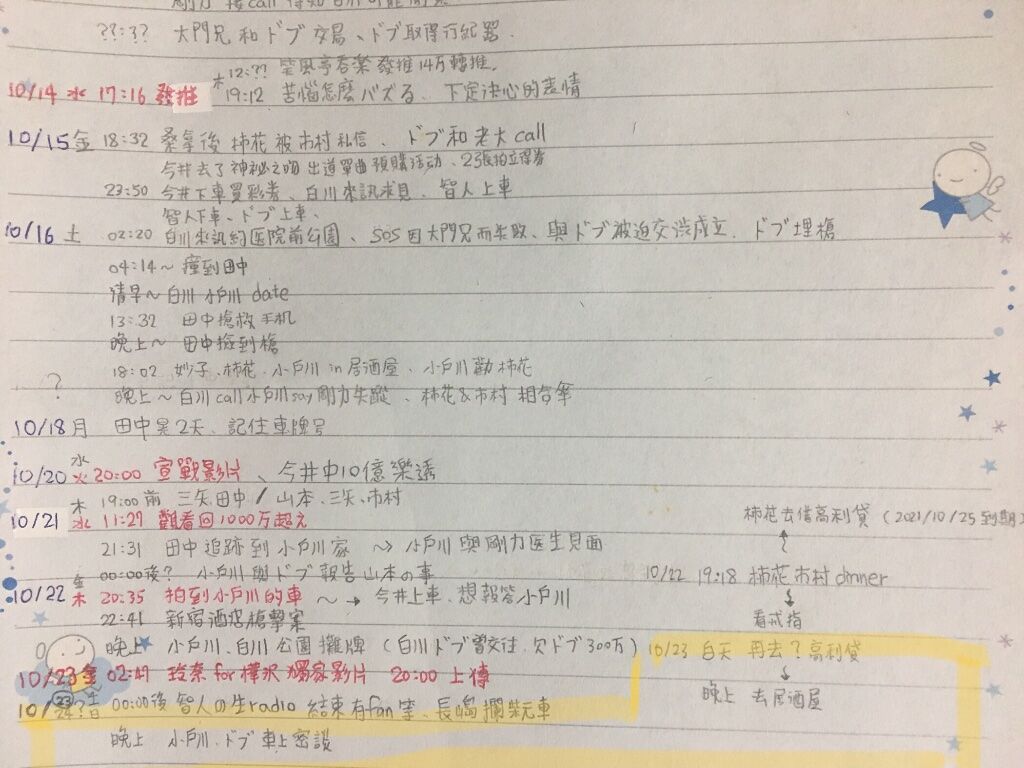 ??:?? 大門兄和ドブ交易、ドブ取得行紀器.
木 12:?? 笑風亭呑楽 發推 14万轉推.
10/14 水 17:16 發推 19:12 苦惱怎麼バズる、下定決心的表情
10/15 金 18:32 桑拿後 柿花 被 市村 私信、ドブ和老大 call
今井去了神祕之吻 出道單曲 預購活动、23張拍立得券
23:50 今井下車買彩券、白川來訊求見、智人上車
智人下車、ドブ上車、
10/16 土 02:20 白川來訊約医院前公園、SOS因大門兄而失敗、與ドブ被迫交涉成立、ドブ埋槍
04:14~ 撞到田中
清早~ 白川 小戶川 date
13:32 田中搶救手机
晚上~ 田中撿到槍
18:02 妙子、柿花、小戶川 in 居酒屋、小戶川勸柿花
? 晚上~ 白川 call 小戶川 say 剛力失蹤、柿花&市村 相合傘
10/18 月 田中晃2天、記住車牌号
10/20 水 火 20:00 宣戰影片、今井中10億樂透
木 19:00前 三矢田中 / 山本、三矢、市村
10/21 水 11:27 觀看回1000万超え
柿花去借高利貸 (2021/10/25到期
21:31 田中追跡到小戶川家 ~> 小戶川與剛力医生見面
金 00:00後? 小戶川與ドブ報告山本の事
10/22 19:18 柿花市村 dinner
10/22 木 20:35 拍到小戶川的車 ~→ 今井上車、想報答小戶川
22:41 新宿酒店槍擊案
看戒指
晚上 小戶川、白川 公園攤牌 (白川ドブ曾交往、欠ドブ300万)
10/23 白天 再去?高利貸
10/23 金 02:47 玲奈 for 樺沢 獨家影片 20:00 上傳
晚上 去居酒屋
10/23 24? 土 日 00:00後 智人の生radio 結束有fan等、長嶋攔柴元車
晚上 小戶川、ドブ 車上密談